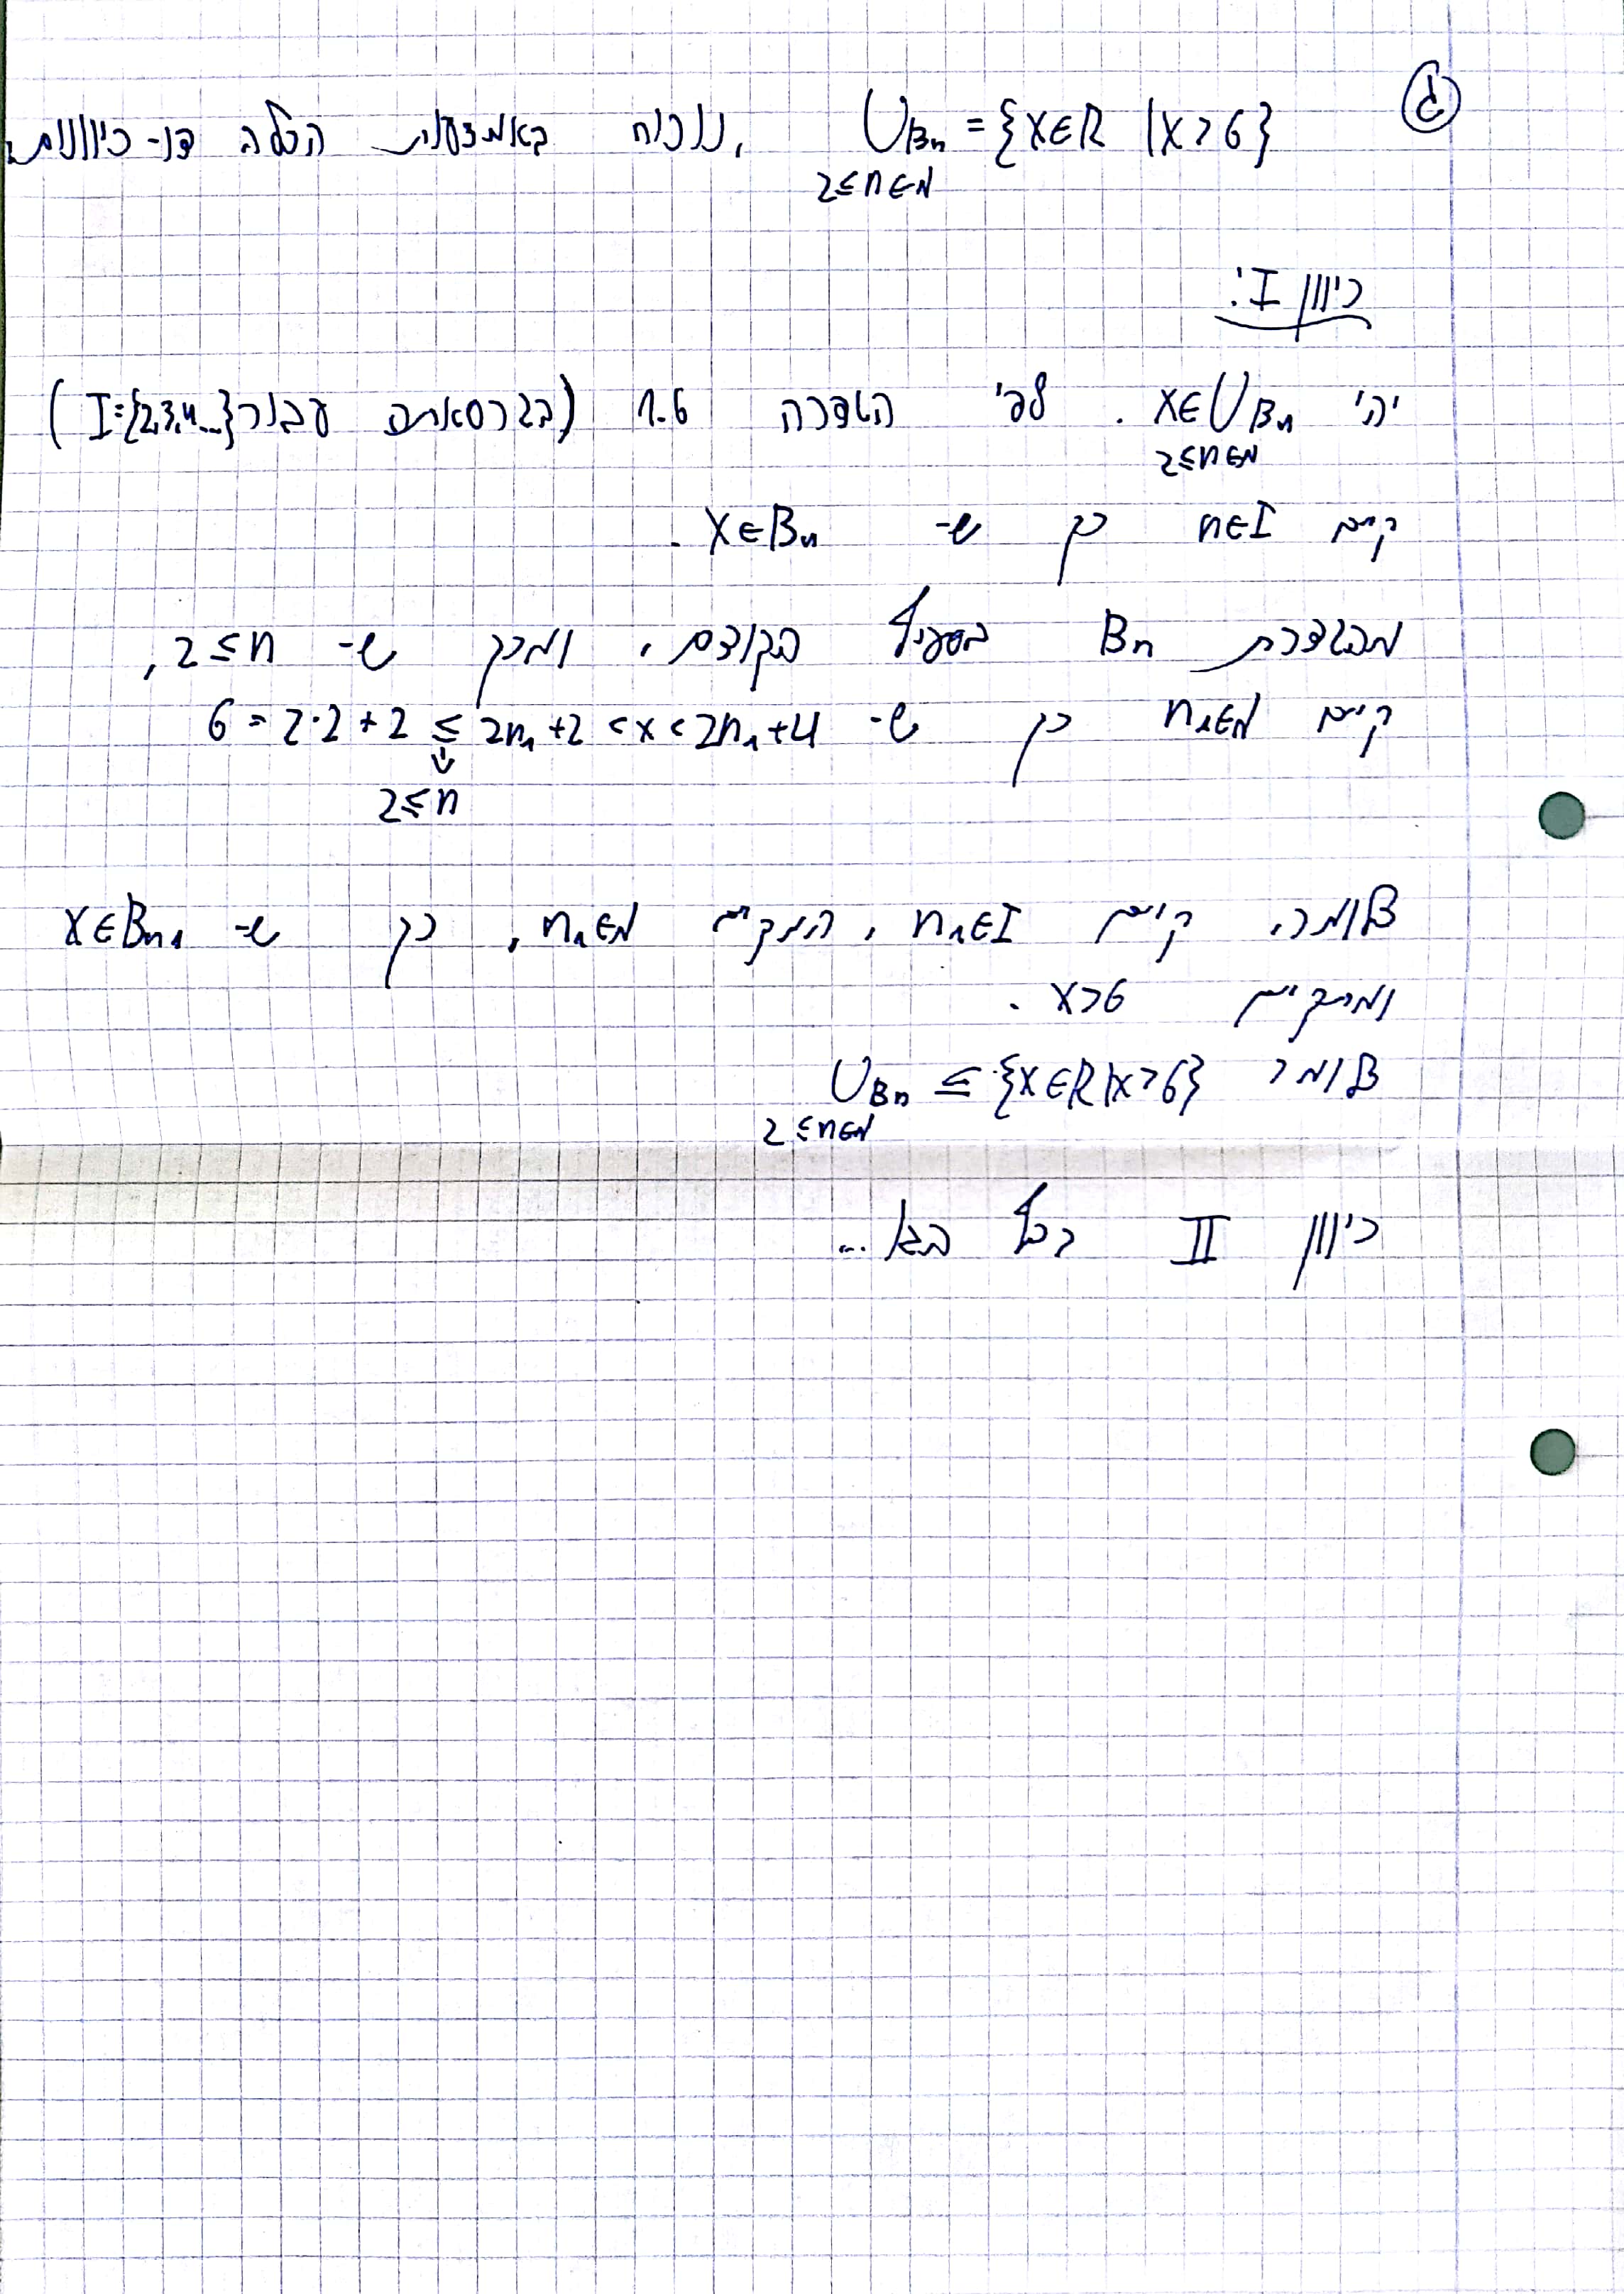 ג
⋃Bₙ = {x∈R | x>6} , נוכיח באמצעות הכלה דו-כיוונית:
2≤n∈N
כיוון I:
יהי x∈⋃Bₙ . לפי הגדרה 1.6 (בגרסאתה עבור I={2,3,4...})
2≤n∈N
קיים n∈I כך ש- x∈Bₙ .
מהגדרת Bₙ בסעיף הקודם, ומכך ש- 2≤n,
קיים n₁∈N כך ש- 6 = 2·2+2 ≤ 2n₁+2 < x < 2n₁+4
⇓
2≤n
כלומר, קיים n₁∈I, המקיים n₁∈N, כך ש- x∈Bₙ₁
ומתקיים x>6 .
כלומר ⋃Bₙ ⊆ {x∈R|x>6}
2≤n∈N
כיוון II בדף הבא...